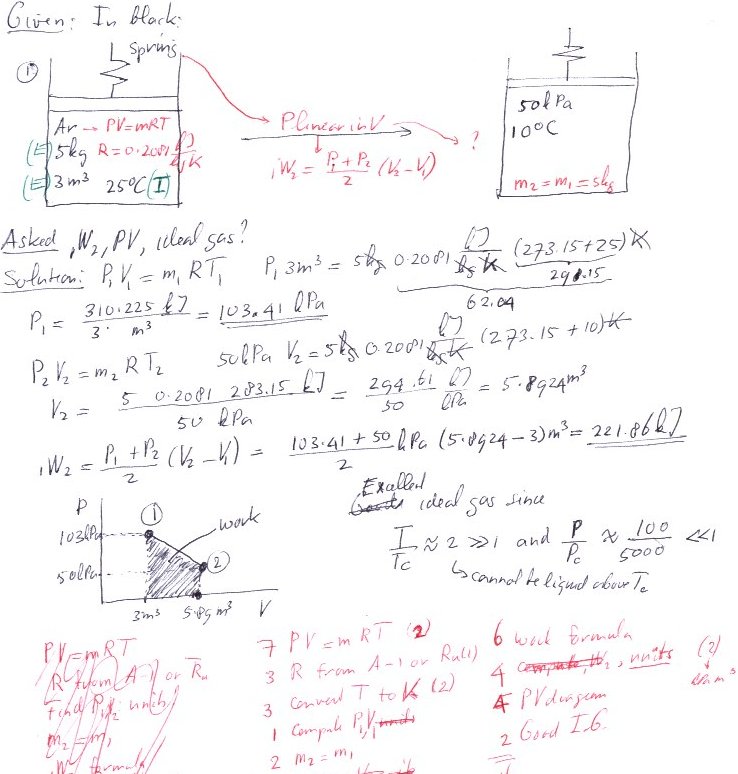 Given: In black:
① spring
Ar → PV=mRT
(E) 5kg R=0.2081 kJ/kg K
(E) 3m³ 25°C (I)
P linear in V → ?
₁W₂ = (P₁+P₂)/2 (V₂-V₁)
50kPa
10°C
m₂=m₁=5kg
Asked ₁W₂, PV, ideal gas?
Solution: P₁V₁ = m₁RT₁ P₁ 3m³ = 5kg 0.2081 kJ/kg K (273.15+25)K
298.15
62.04
P₁ = 310.225 kJ / 3 m³ = 103.41 kPa
P₂V₂ = m₂RT₂ 50kPa V₂ = 5kg 0.2081 kJ/kg K (273.15+10)K
V₂ = 5 0.2081 283.15 kJ / 50 kPa = 294.61/50 kJ/kPa = 5.8924m³
₁W₂ = (P₁+P₂)/2 (V₂-V₁) = (103.41+50)/2 kPa (5.8924-3)m³ = 221.86kJ
P
① work
103kPa
②
50kPa
3m³ 5.89m³ V
Excellent ideal gas since
T/Tc ≈ 2 >> 1 and P/Pc ≈ 100/5000 << 1
↳ cannot be liquid above Tc
PV=mRT
R from A-1 or Ru
find P₁, V₂ units
m₂=m₁
W formula
7 PV=mRT (2)
3 R from A-1 or Ru(1)
3 convert T to K (2)
1 compute P₁V₁ units
2 m₂=m₁
6 work formula
4 compute W₂, units (2)
kPa m³
4 PV diagram
2 Good I.G.